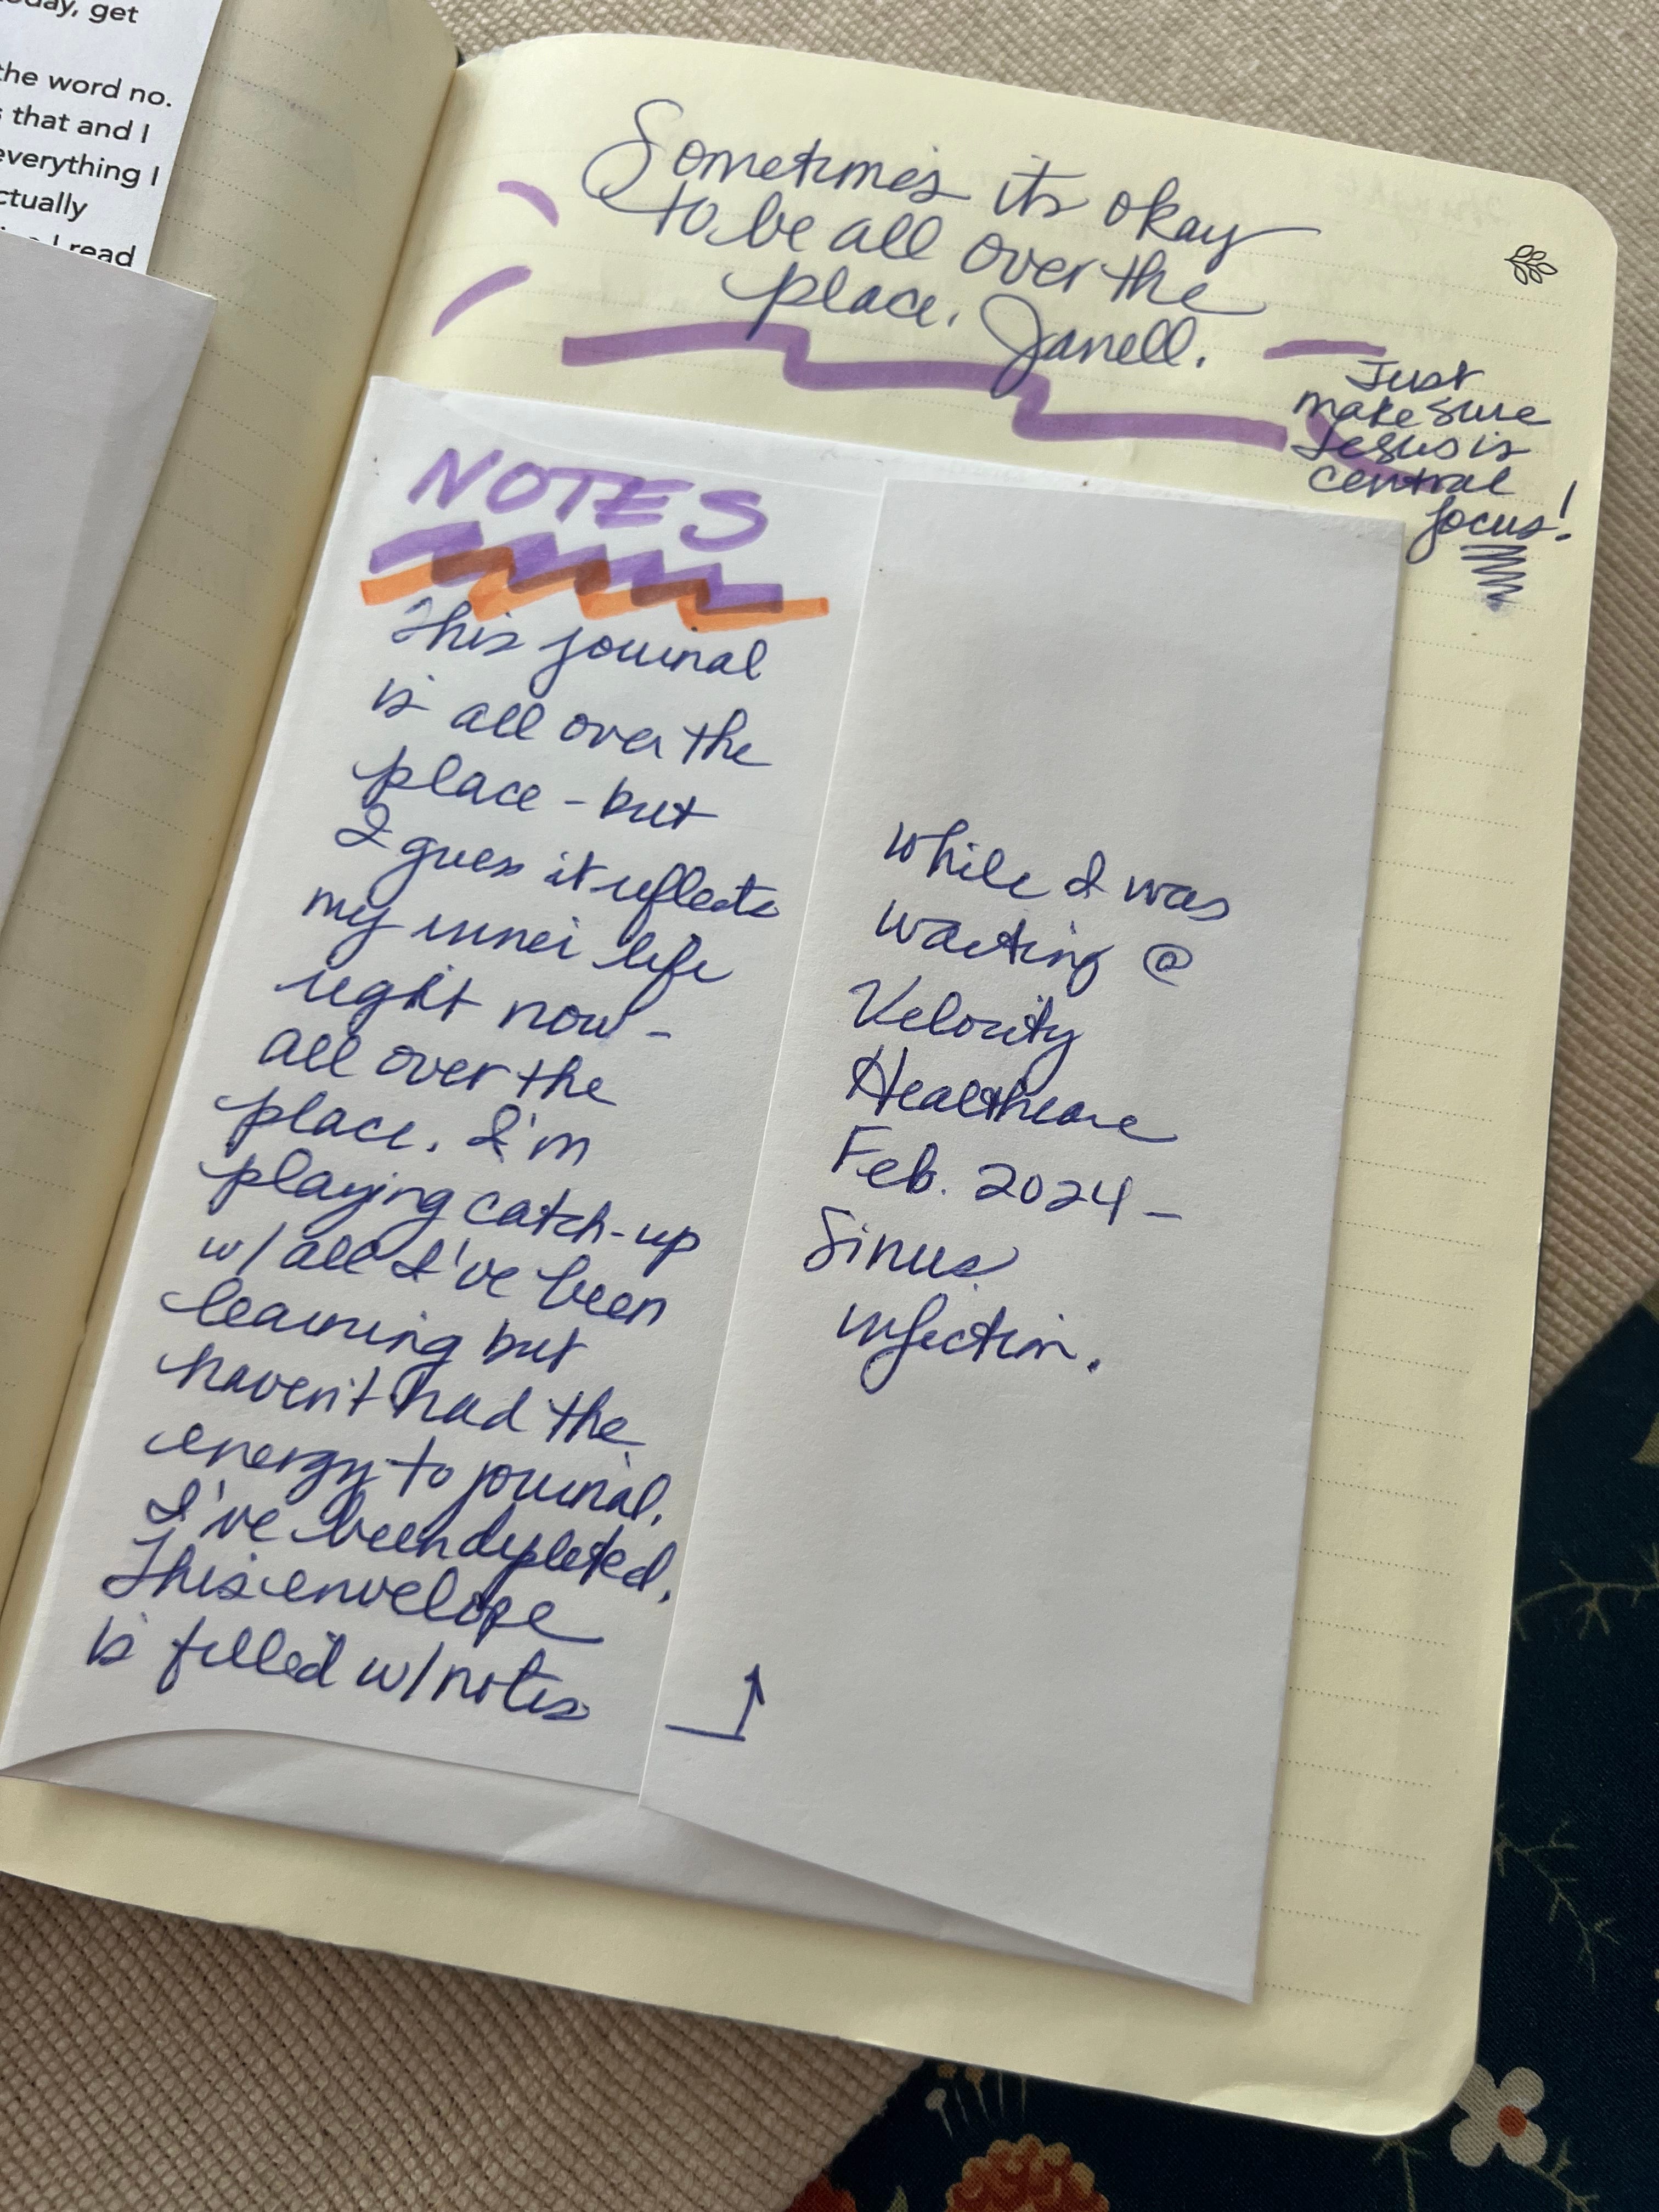 day, get
the word no.
s that and I
everything I
ctually
I read
Sometimes its okay
to be all over the
place. Janell.
Just
make sure
Jesus is
central
focus!
NOTES
This journal
is all over the
place - but
I guess it reflects
my inner life
right now -
all over the
place. I'm
playing catch-up
w/ all I've been
learning but
haven't had the
energy to journal.
I've been depleted.
This envelope
is filled w/ notes
while I was
waiting @
Velocity
Healthcare
Feb. 2024 -
Sinus
infection.